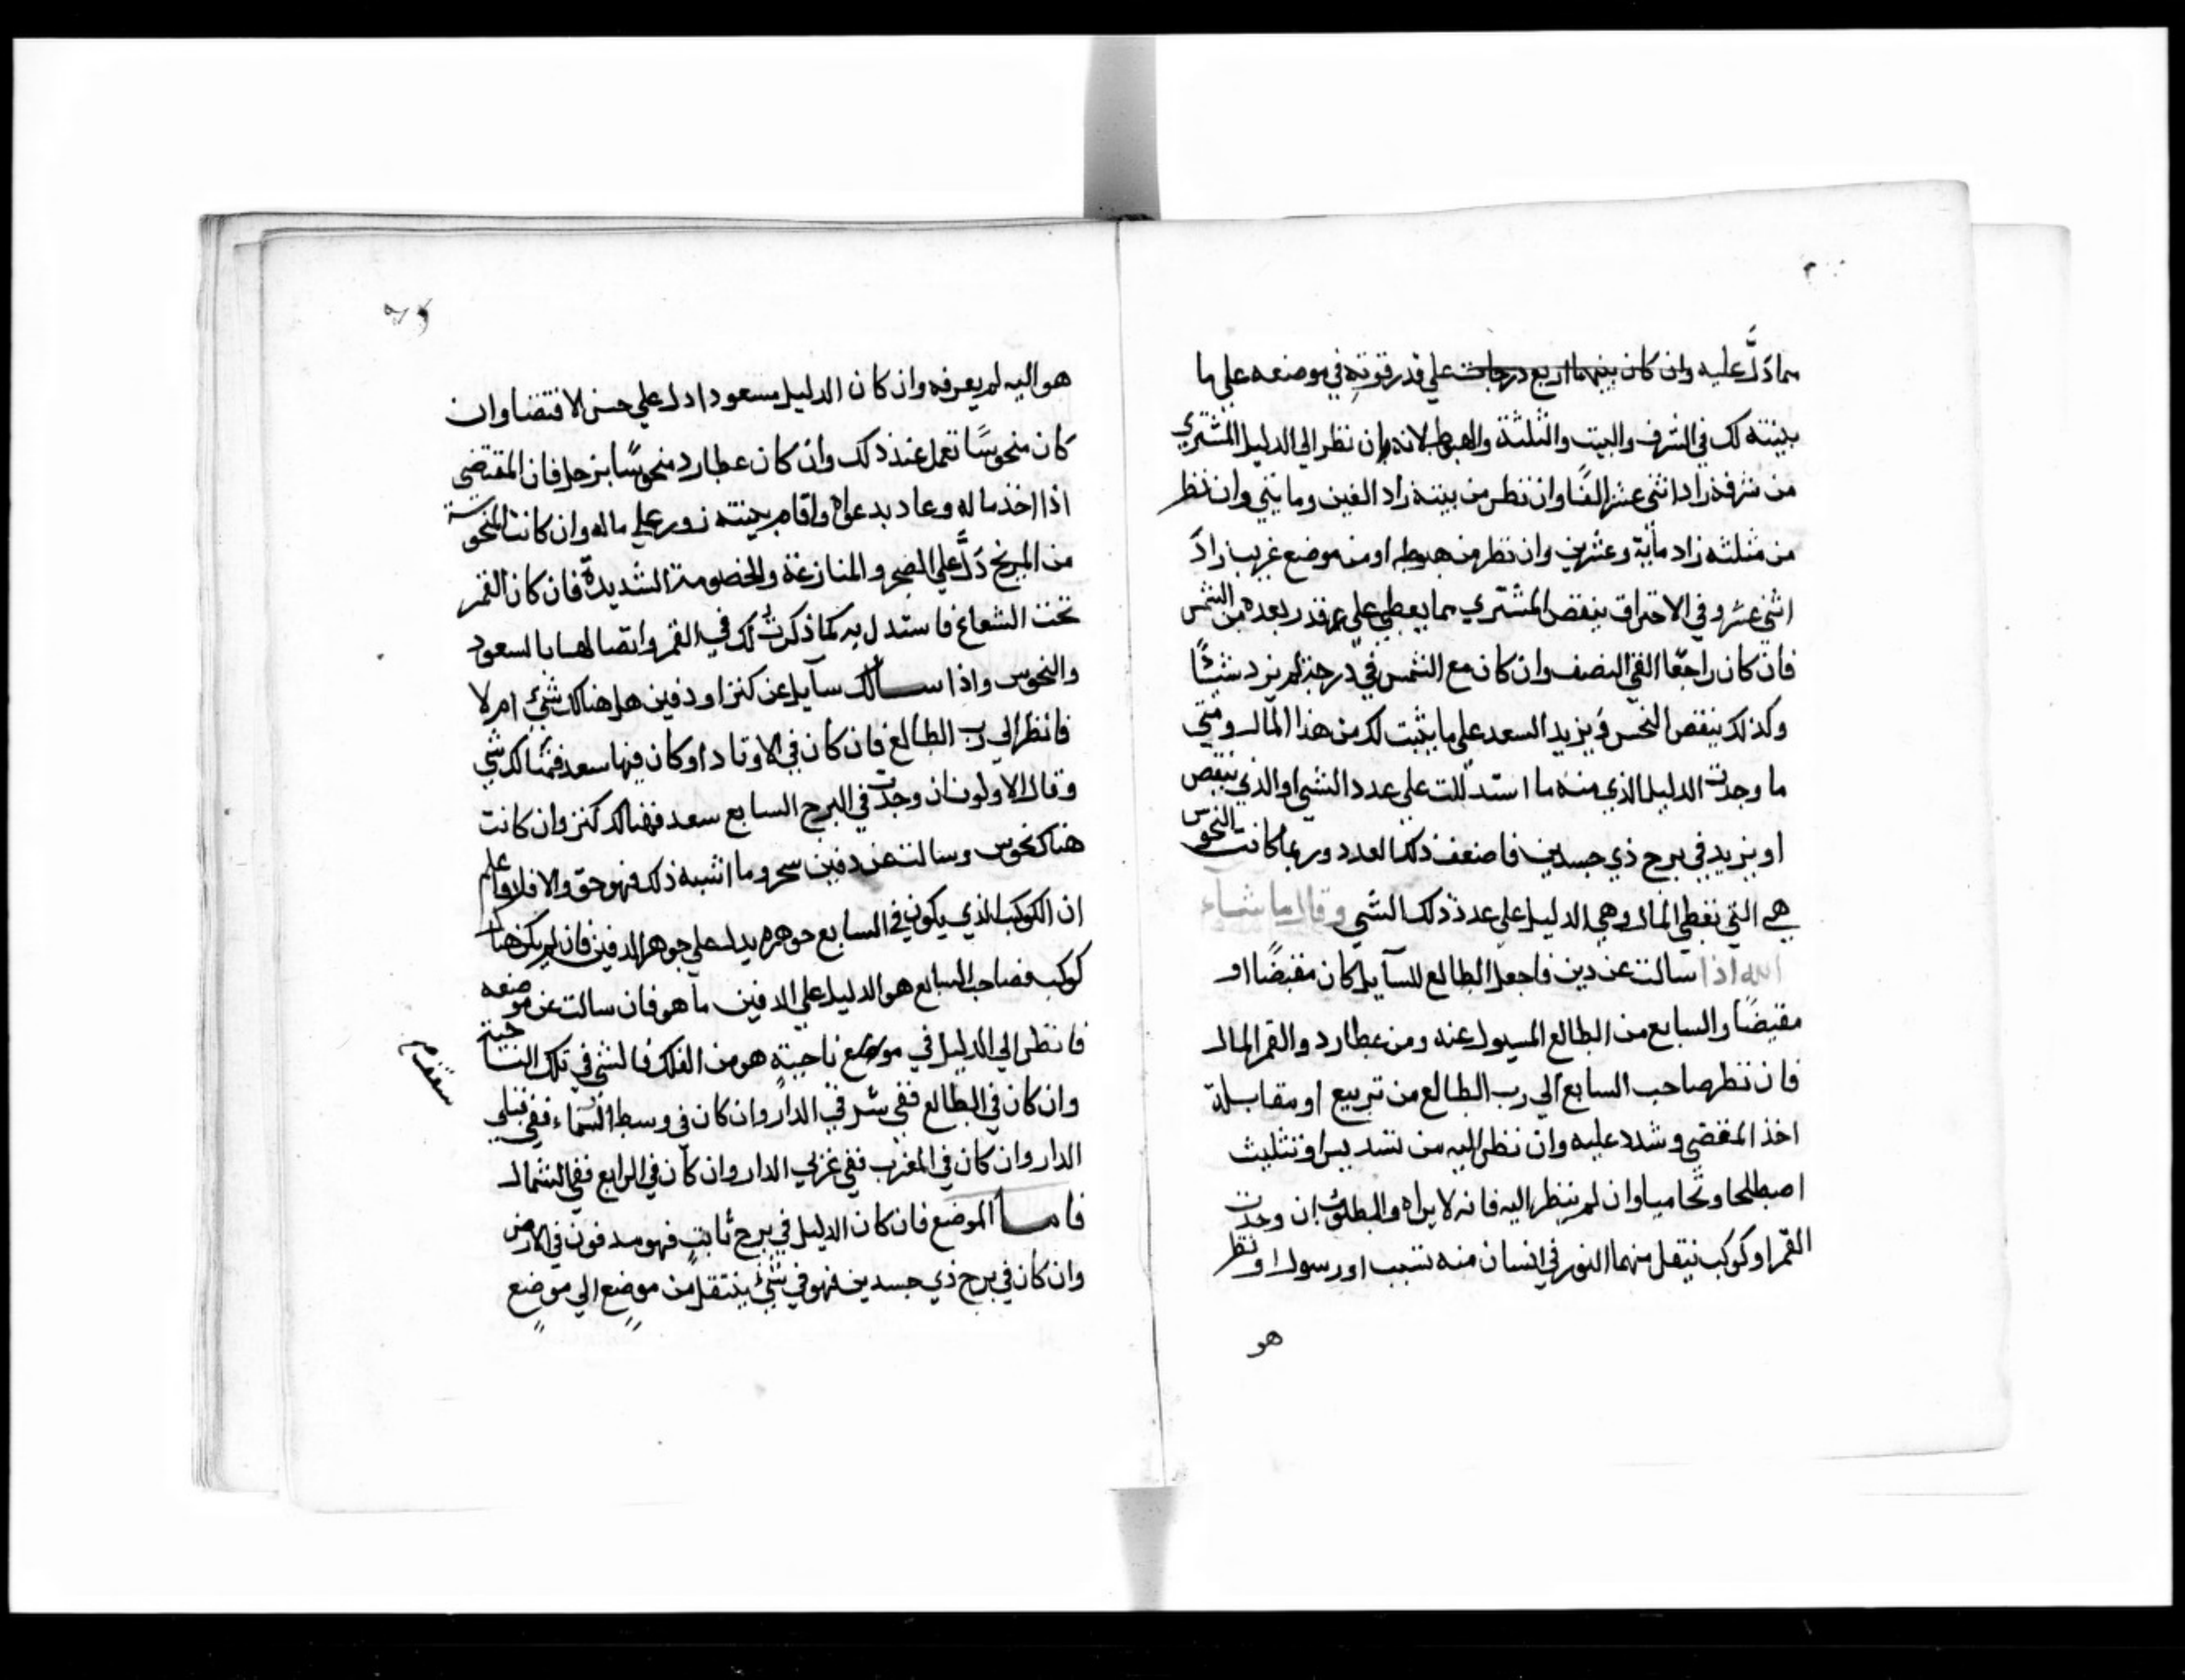 مما دَلَّ عليه وان كان بينهما اربع درجات علي قدر قوته في موضعه علي ما
بينته لك في الشرف والبيت والثلثة والهبوط لانه ان نظر الي الدليل المشتري
من شرفه زاد اثني عشر الفًا وان نظر من بيته زاد الفين ومايتي وان نظر
من مثلثه زاد ماية وعشرين وان نظر من هبوطه او من موضع غريب زادَ
اثني عشر وفي الاحتراق ينقص المشتري مما يعطي علي قدر بعده من الشمس
فان كان راجعًا الغي النصف وان كان مع الشمس في درجة لم يزد شيئًا
وكذلك ينقص النحس ويزيد السعد علي ما يثبت لك من هذا المال ومتي
ما وجدت الدليل الذي منه ما استدللت علي عدد الشي او الذي ينقص
او يزيد في برج ذي جسدين فاضعف ذلك العدد وربما كانت النحوس
هي التي تعطي المال وهي الدليل علي عدد ذلك الشي وقال ما شاء
الله اذا سالت عن دين فاجعل الطالع للسآيل كان مقبضًا او
مقبضًا والسابع من الطالع المسيول عنه ومن عطارد والقمر المال
فان نظر صاحب السابع الي رب الطالع من تربيع او مقابلة
اخذ المقضي وشدد عليه وان نظر اليه من تسديس او تثليث
اصطلحا وتحاميا وان لم ينظر اليه فانه لا يراه والبطلوث ان وجدت
القمر او كوكب ينقل منهما النور في انسان منه تسبب او رسول او نظر
هو
هو اليه لم يعرفه وان كان الدليل مسعودا دل علي حسن الاقتضا وان
كان منحوسًا تعمل عند ذلك وان كان عطارد منحوسًا بزحل فان المقتضي
اذا اخذ ماله وعاد بدعواه واقام بينته زور علي ماله وان كانت المنحوسة
من المريخ دَلَّ علي الضجر والمنازعة والخصومة الشديدة فان كان القمر
تحت الشعاع فاستدل به كما ذكرت لك في القمر واتصالها بالسعود
والنحوس واذا سالك سآيل عن كنز او دفين هل هناك شئ ام لا
فانظر الي رب الطالع فان كان في الاوتاد او كان فيها سعد فهناك شي
وقال الاولون ان وجدت في البرج السابع سعد فهناك كنز وان كانت
هناك نحوس وسالت عن دفين سحر وما اشبه ذلك فهو حق والا فلا واعلم
ان الكوكب الذي يكون في السابع جوهره يدل علي جوهر الدفين فان لم يكن هناك
كوكب فصاحب السابع هو الدليل علي الدفين ما هو فان سالت عن موضعه
فانظر الي الدليل في موضع ناحيةٍ هو من الفلك فالشي في تلك الناحية
وان كان في الطالع ففي شرقي الدار وان كان في وسط السماء ففي قبلي
الدار وان كان في المغرب ففي غربي الدار وان كان في الرابع ففي الشمال
فاما الموضع فان كان الدليل في برج ثابت فهو مدفون في الارض
وان كان في برج ذي جسدين فهو في شئ ينتقل من موضع الي موضع